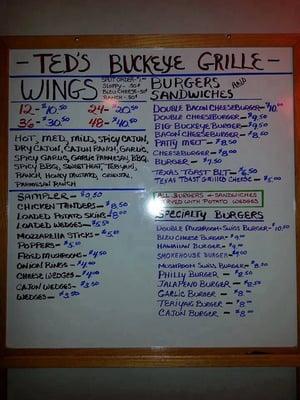 - TED'S BUCKEYE GRILLE -
WINGS
SPLIT ORDER-
SLOPPY - .50¢
BLEU CHEESE-50¢
RANCH-.50¢
12- $10.50 24- $20.50
36- $30.50 48- $40.50
HOT, MED, MILD, SPICY CAJUN,
DRY CAJUN, CAJUN RANCH, GARLIC,
SPICY GARLIC, GARLIC PARMESAN, BBQ,
SPICY BBQ, SWEETHEAT, TERIYAKI,
RANCH, HONEY MUSTARD,
PARMESAN RANCH
SAMPLER - $9.50
CHICKEN TENDERS - $8.50
LOADED POTATO SKINS - $8.00
LOADED WEDGES - $5.50
MOZZARELLA STICKS - $5.00
POPPERS -
FRIED MUSHROOMS - $4.50
ONION RINGS - $4.00
CHEESE WEDGES - $4.00
CAJUN WEDGES - $3.50
WEDGES - $3.50
BURGERS AND
SANDWICHES
DOUBLE BACON CHEESEBURGER - $10.00
DOUBLE CHEESEBURGER - $9.50
BIG BUCKEYE BURGER - $9.50
BACON CHEESEBURGER - $8.50
PATTY MELT - $8.50
CHEESEBURGER - $8.00
BURGER - $7.50
TEXAS TOAST BLT - $6.50
TEXAS TOAST GRILLED CHEESE - $5.00
ALL BURGERS + SANDWICHES
SERVED WITH POTATO WEDGES
SPECIALTY BURGERS
DOUBLE MUSHROOM-SWISS BURGER - $10.00
BLEU CHEESE BURGER - $9.00
HAWAIIAN BURGER - $9.00
SMOKEHOUSE BURGER - $9.00
MUSHROOM SWISS BURGER - $8.50
PHILLY BURGER - $8.50
JALAPEÑO BURGER - $8.50
GARLIC BURGER - $8.00
TERIYAKI BURGER - $8.00
CAJUN BURGER - $8.00